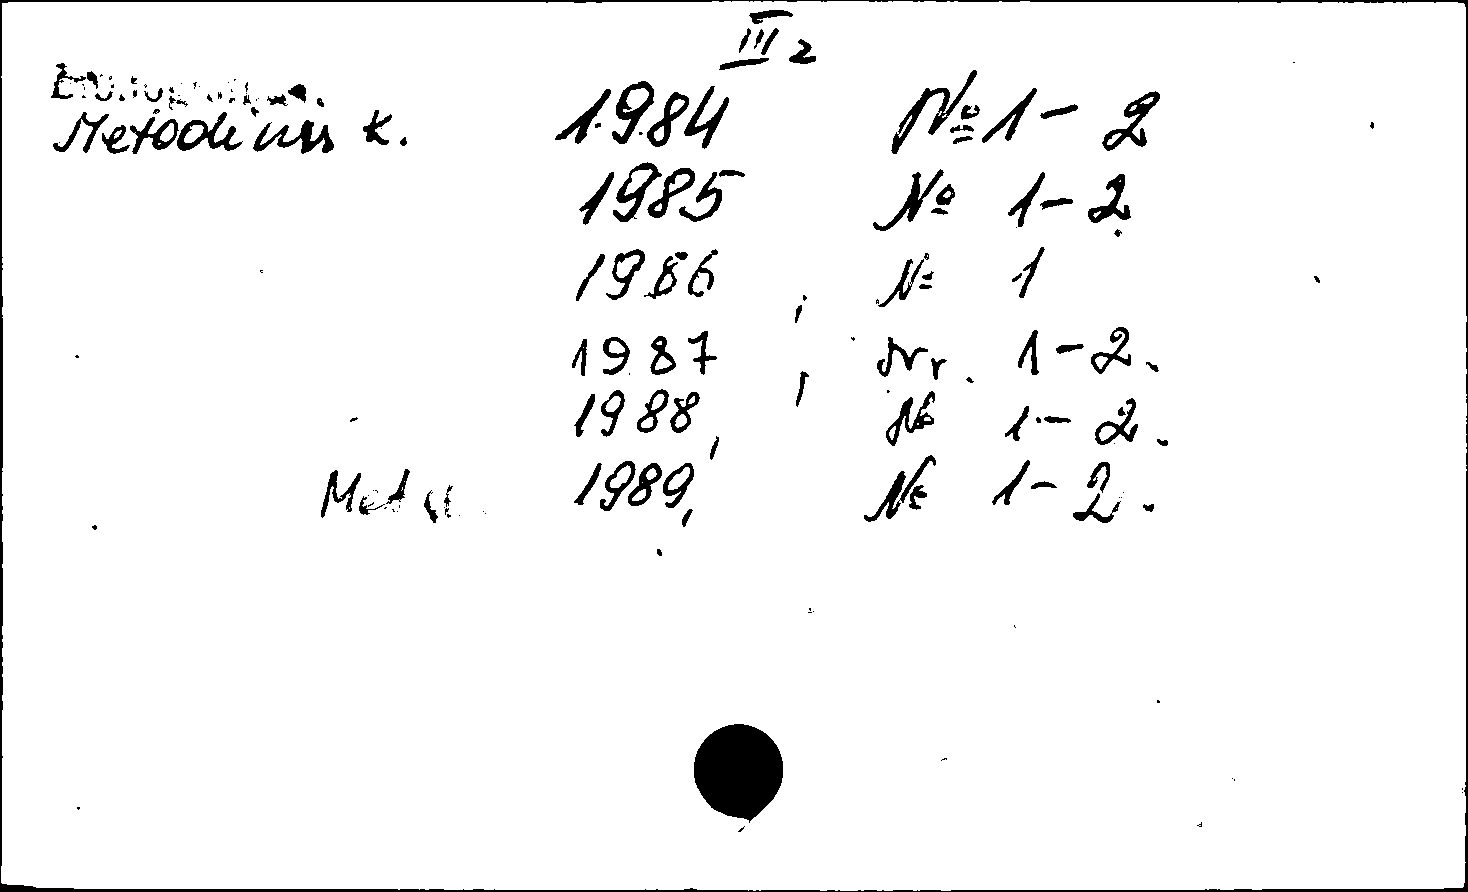 III 2
Metodinis k. 1984 № 1-2
1985 № 1-2
1986, № 1
1987, Nr. 1-2.
1988, № 1-2.
1989, № 1-2.